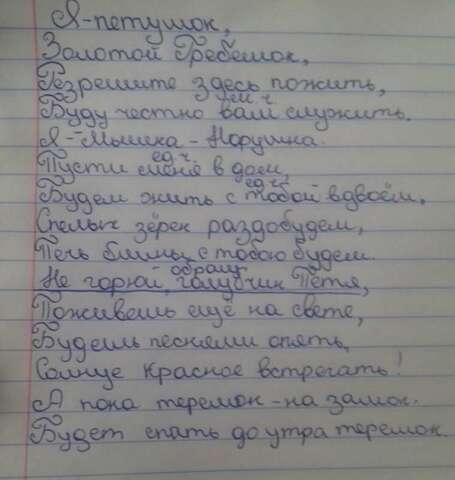 Я-петушок,
Золотой Гребешок,
Резрешите здесь пожить,
ем. ч.
Буду честно вам служить.
Я-Мышка-Норушка.
ед.ч.
Пусти меня в дом,
ед.ч.
Будем жить с тобой вдвоём.
Спелых зёрек раздобудем,
Печь блины с тобою будем.
обращ
Не горюй, голубчик Петя,
Поживешь ещё на свете,
Будешь песнями опять,
Солнце красное встречать!
А пока теремок-на замок.
Будет спать до утра теремок.